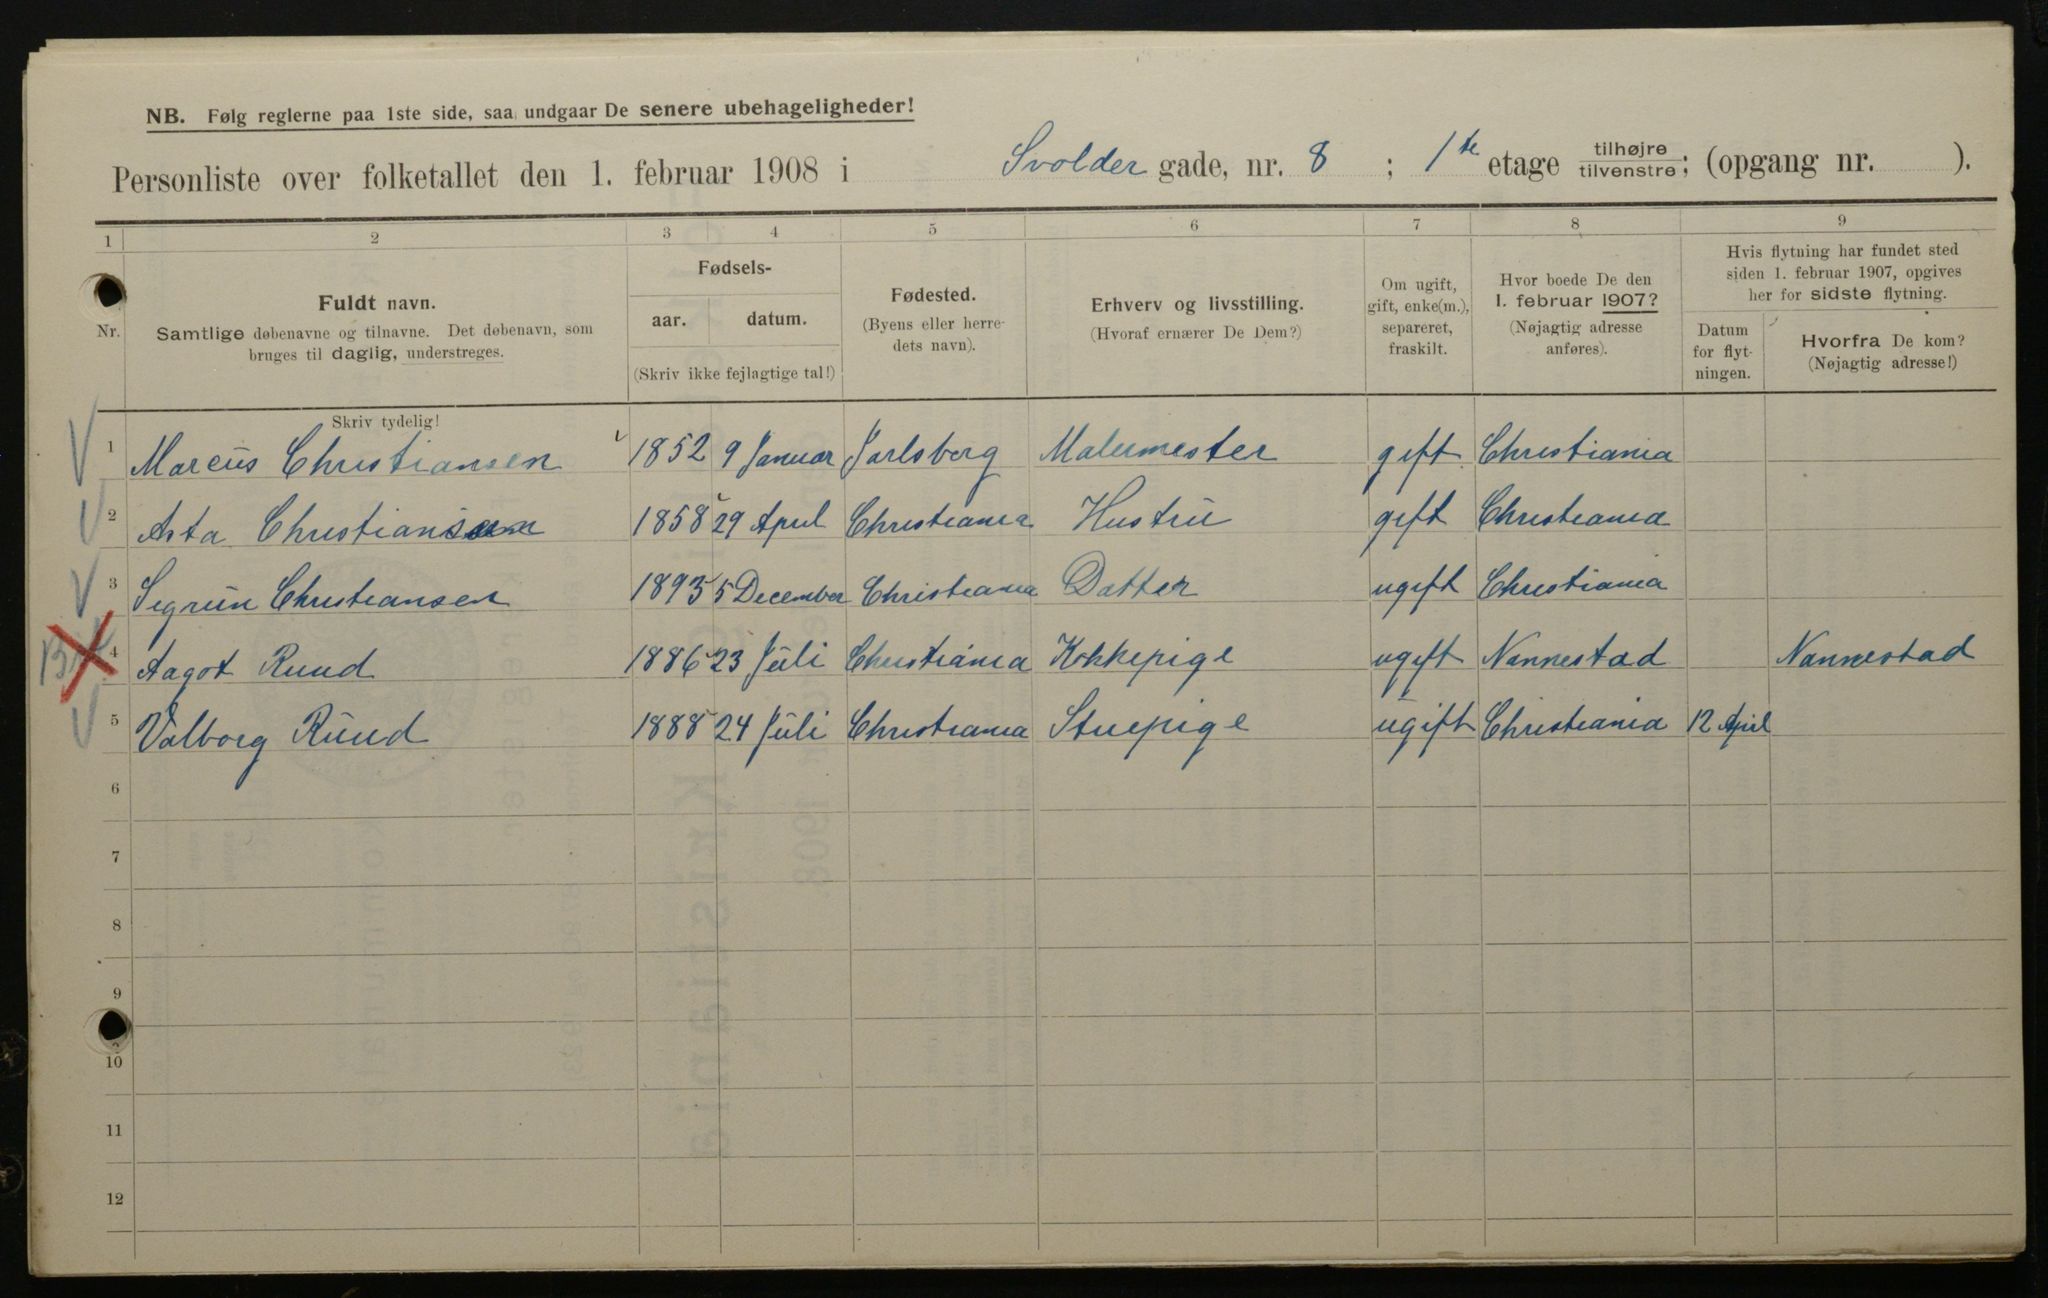 NB. Følg reglerne paa 1ste side, saa undgaar De senere ubehageligheder!
Personliste over folketallet den 1. februar 1908 i Svolder gade, nr. 8 ; 1ste etage tilhøjre tilvenstre; (opgang nr. ).
1 2 3 4 5 6 7 8 9
Nr.
Fuldt navn.
Samtlige døbenavne og tilnavne. Det døbenavn, som
bruges til daglig, understreges.
Fødsels-
aar. datum.
(Skriv ikke fejlagtige tal!)
Fødested.
(Byens eller herre-
dets navn).
Erhverv og livsstilling.
(Hvoraf ernærer De Dem?)
Om ugift,
gift, enke(m.),
separeret,
fraskilt.
Hvor boede De den
1. februar 1907?
(Nøjagtig adresse
anføres).
Hvis flytning har fundet sted
siden 1. februar 1907, opgives
her for sidste flytning.
Datum
for flyt-
ningen.
Hvorfra De kom?
(Nøjagtig adresse!)
Skriv tydelig!
1 Marcus Christiansen 1852 9 Januar Jarlsberg Malermester gift Christiania
2 Asta Christiansen 1858 29 April Christiania Hustru gift Christiania
3 Sigrun Christiansen 1893 5 December Christiania Datter ugift Christiania
4 Aagot Ruud 1886 23 Juli Christiania Kokkepige ugift Nannestad Nannestad
5 Valborg Ruud 1888 24 Juli Christiania Stuepige ugift Christiania 12 April
6
7
8
9
10
11
12